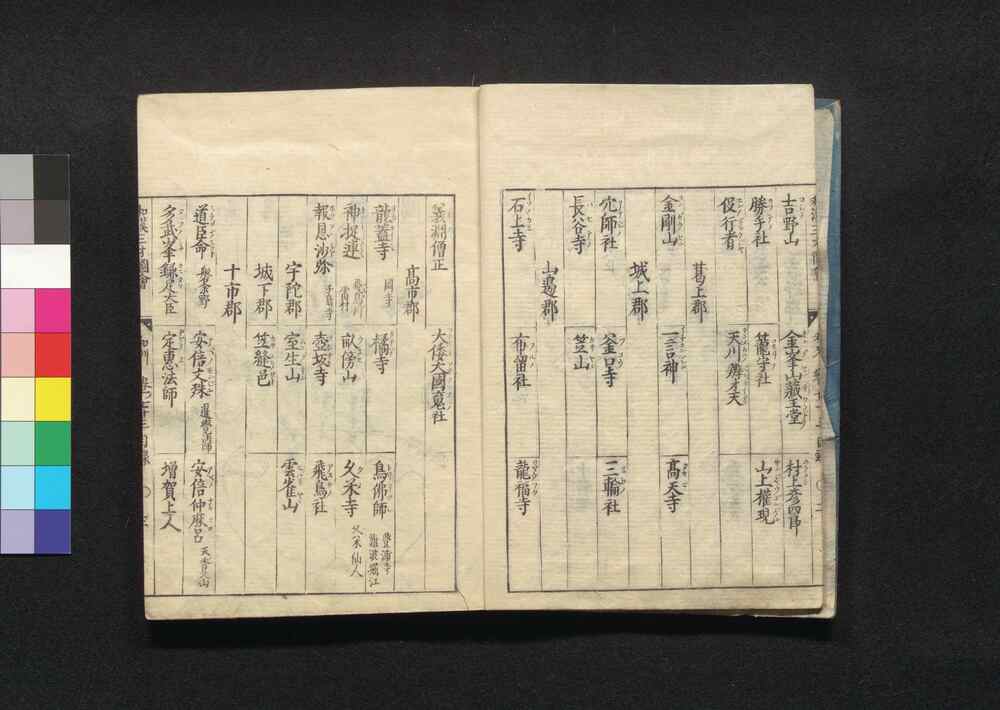 吉野山 金峯山藏王堂 村上彦四郎
勝手社 籠守社 山上權現
役行者 天川辨才天
葛上郡
金剛山 一言神 髙天寺
城上郡
穴師社 釜口寺 三輪社
長谷寺 笠山
山邉郡
石上寺 布留社 龍福寺
義淵僧正 大倭大國魂社
髙市郡
龍蓋寺 岡寺 橘寺 鳥佛師 豊浦寺 難波堀江
神 連 畝傍山 久米寺 久米仙人
報恩沙弥 子島寺 壺坂寺 飛鳥社
宇陀郡 室生山 雲雀山
城下郡 笠縫邑
十市郡
道臣命 安倍文珠 暹覺法師 安倍仲麻呂 天香具山
多武峯鎌足大臣 定恵法師 增賀上人
和漢三才圖會 大和 卷之七十三 目録